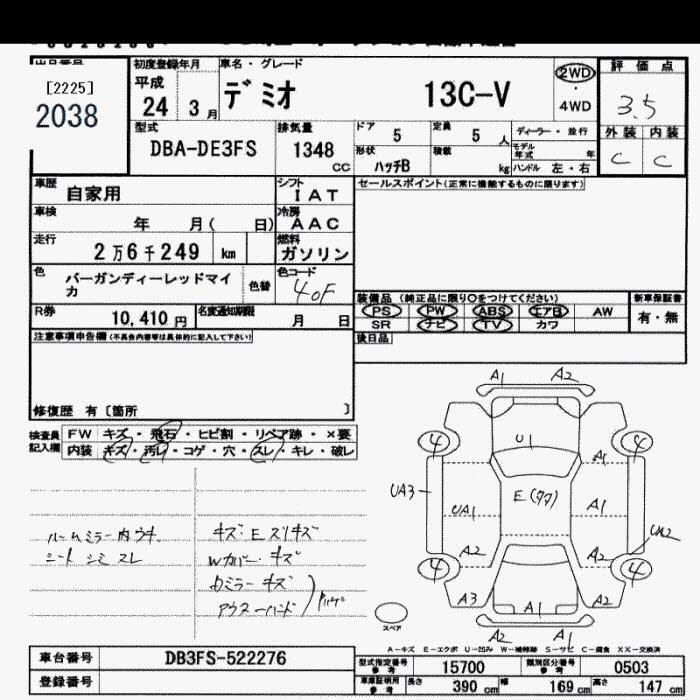 [2225]
2038
初度登録年月
平成
24 3月
車名・グレード
デミオ 13C-V
2WD
・
4WD
評価点
3.5
外装 内装
C C
型式
DBA-DE3FS
排気量
1348
CC
ドア 5
定員 5 人
ディーラー・並行
形状
ハッチB
積載 kg
モデル年式 年
ハンドル 左・右
車歴
自家用
シフト
I A T
セールスポイント(正常に機能するものに限ります)
車検
年 月( 日)
冷房
A A C
走行
2万6千249 km
燃料
ガソリン
色
バーガンディーレッドマイカ
色替
色コード
40F
装備品(純正品に限り○をつけてください)
新車保証書
PS PW ABS エアB AW
有・無
SR ナビ TV カワ
R券
10,410 円
名変通知期限
月 日
後日品
注意事項申告欄(不具合内容等は具体的に記入して下さい)
修復歴 有〔箇所 〕
検査員記入欄
FW キズ・飛石・ヒビ割・リペア跡・×要
内装 キズ・汚レ・コゲ・穴・スレ・キレ・破レ
ルームミラー内ウキ
シート シミ スレ
キズ・Eスリキズ
Wカバー・キズ
カミラーキズ
アウターハンドル
A1 A2
4 4
U1
A1
UA3
E(タタ)
UA1
A1
UA2
A2 A2
4 4
A3
A1
A2
A2 A1
スペア
A-キズ E-エクボ U-凹み W-補修跡 S-サビ C-腐食 XX-交換済
車台番号
DB3FS-522276
登録番号
型式指定番号 参考
15700
類別区分番号 参考
0503
車庫証明用 参考
長さ 390 cm
幅 169 cm
高さ 147 cm